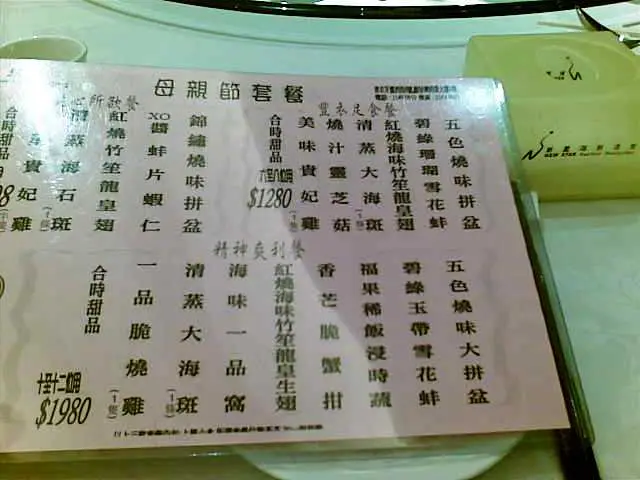 母親節套餐
豐衣足食餐
五色燒味拼盆
碧綠珊瑚雪花蚌
紅燒海味竹笙龍皇翅
清蒸大海斑(一條)
燒汁靈芝菇
美味貴妃雞(一隻)
合時甜品
$1280
心所欲餐
錦繡燒味拼盆
XO醬蚌片蝦仁
紅燒竹笙龍皇翅
清蒸海石斑(一條)
貴妃雞
精神爽利餐
五色燒味大拼盆
碧綠玉帶雪花蚌
福果稀飯浸時蔬
香芒脆蟹拑
紅燒海味竹笙龍皇生翅
海味一品窩
清蒸大海斑(一條)
一品脆燒雞(一隻)
合時甜品
十至十二位用
$1980
NEW STAR